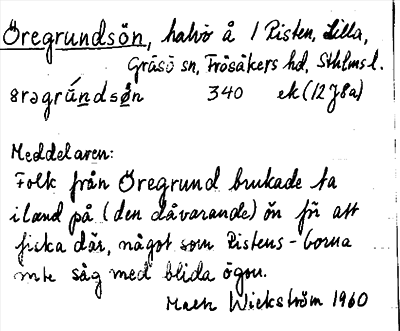 Öregrundsön, halvö å / Risten, Lilla,
Gräsö sn, Frösåkers hd, Sthlmsl.
340 ek (12J8a)
Meddelaren:
Folk från Öregrund brukade ta
iland på (den dåvarande) ön för att
ficka där, något som Ristens-borna
inte såg med blida ögon.
Wickström 1960